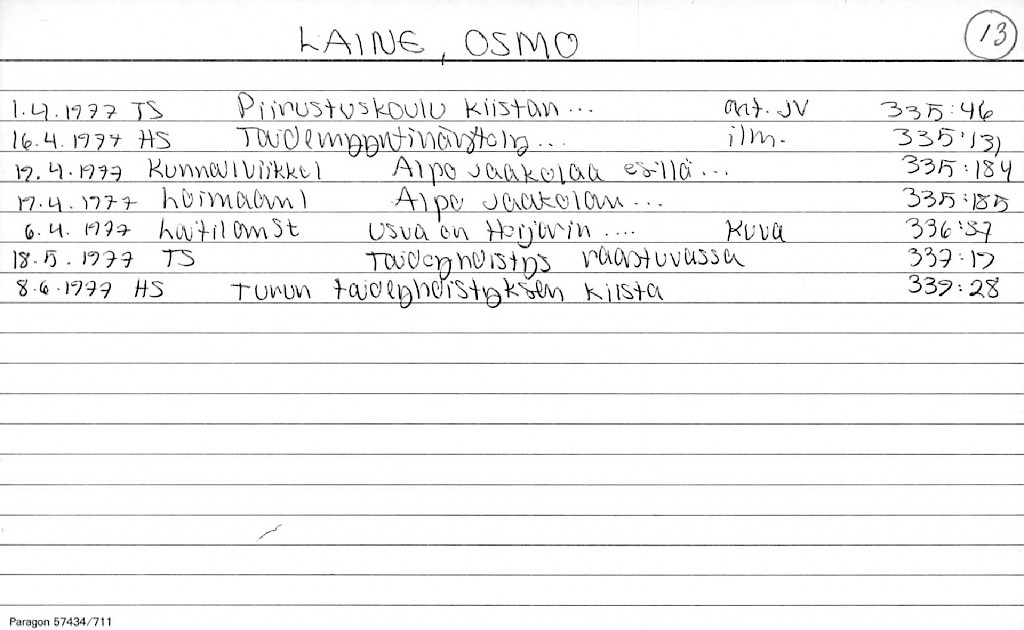 LAINE, OSMO 13
1.4.1977 TS Piirustuskoulu kiistan... ant. JV 335:46
16.4.1977 HS ... ilm. 335:131
19.4.1977 Kunnallviikkol Alpo Jaakolaa esillä... 335:184
19.4.1977 Loimaanl Alpo Jaakolan... 335:185
6.4.1977 LaitilanSt Usva on Harjavin.... Kuva 336:87
18.5.1977 TS Taideyhdistys raastuvassa
8.6.1977 HS Turun taideyhdistyksen kiista 339:28
Paragon 57434/711